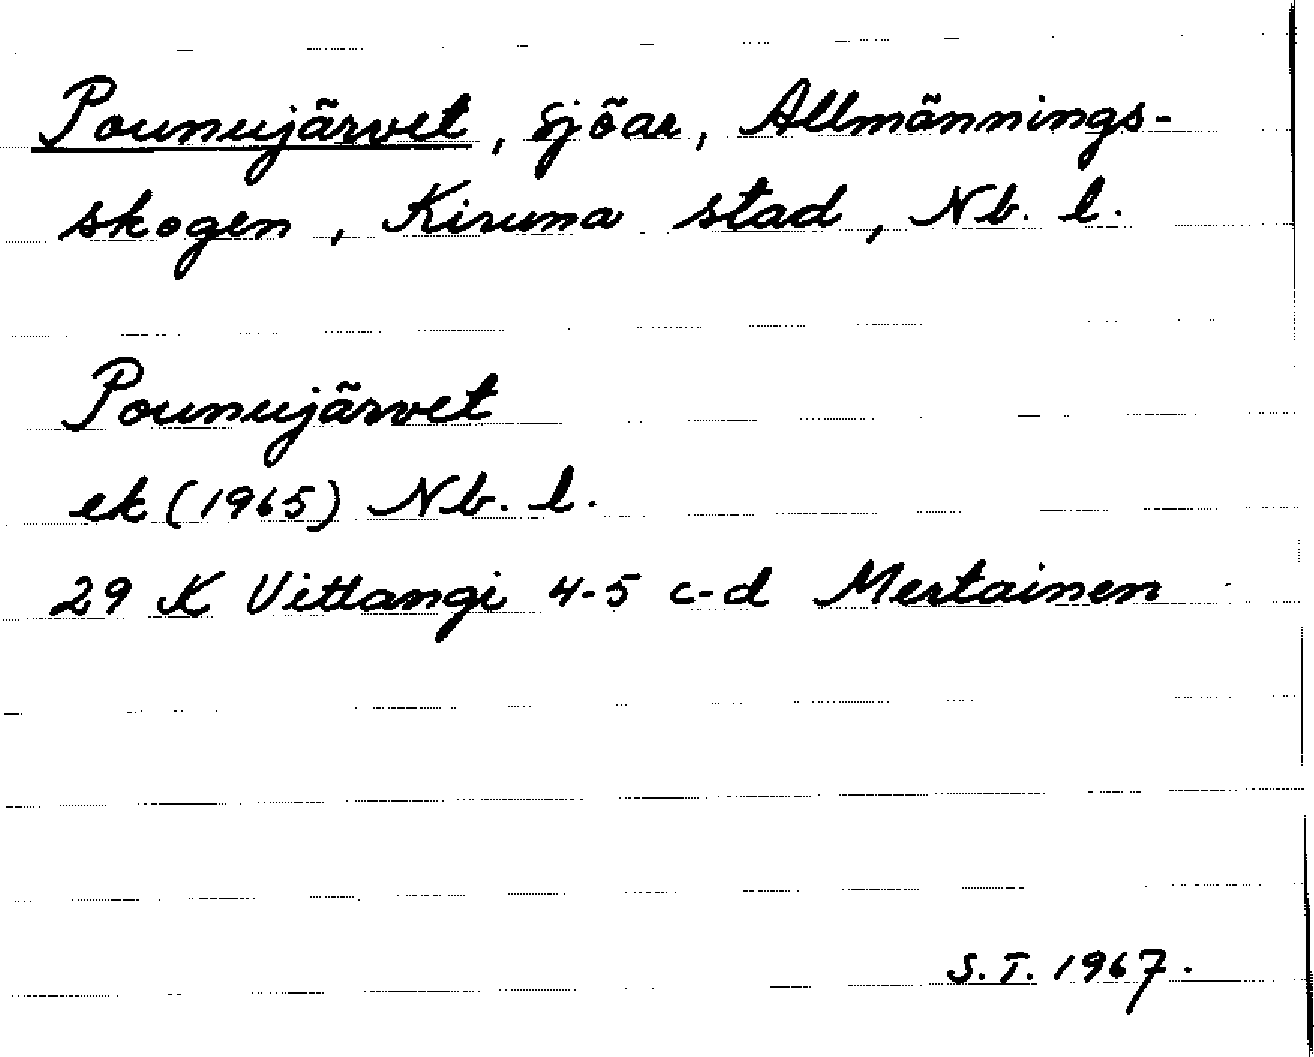 Pounujärvet, sjöar, Allmännings-
skogen, Kiruna stad, Nb. l.
Pounujärvet
ek (1965) Nb. l.
29 K Vittangi 4-5 c-d Mertainen
S.T. 1967.